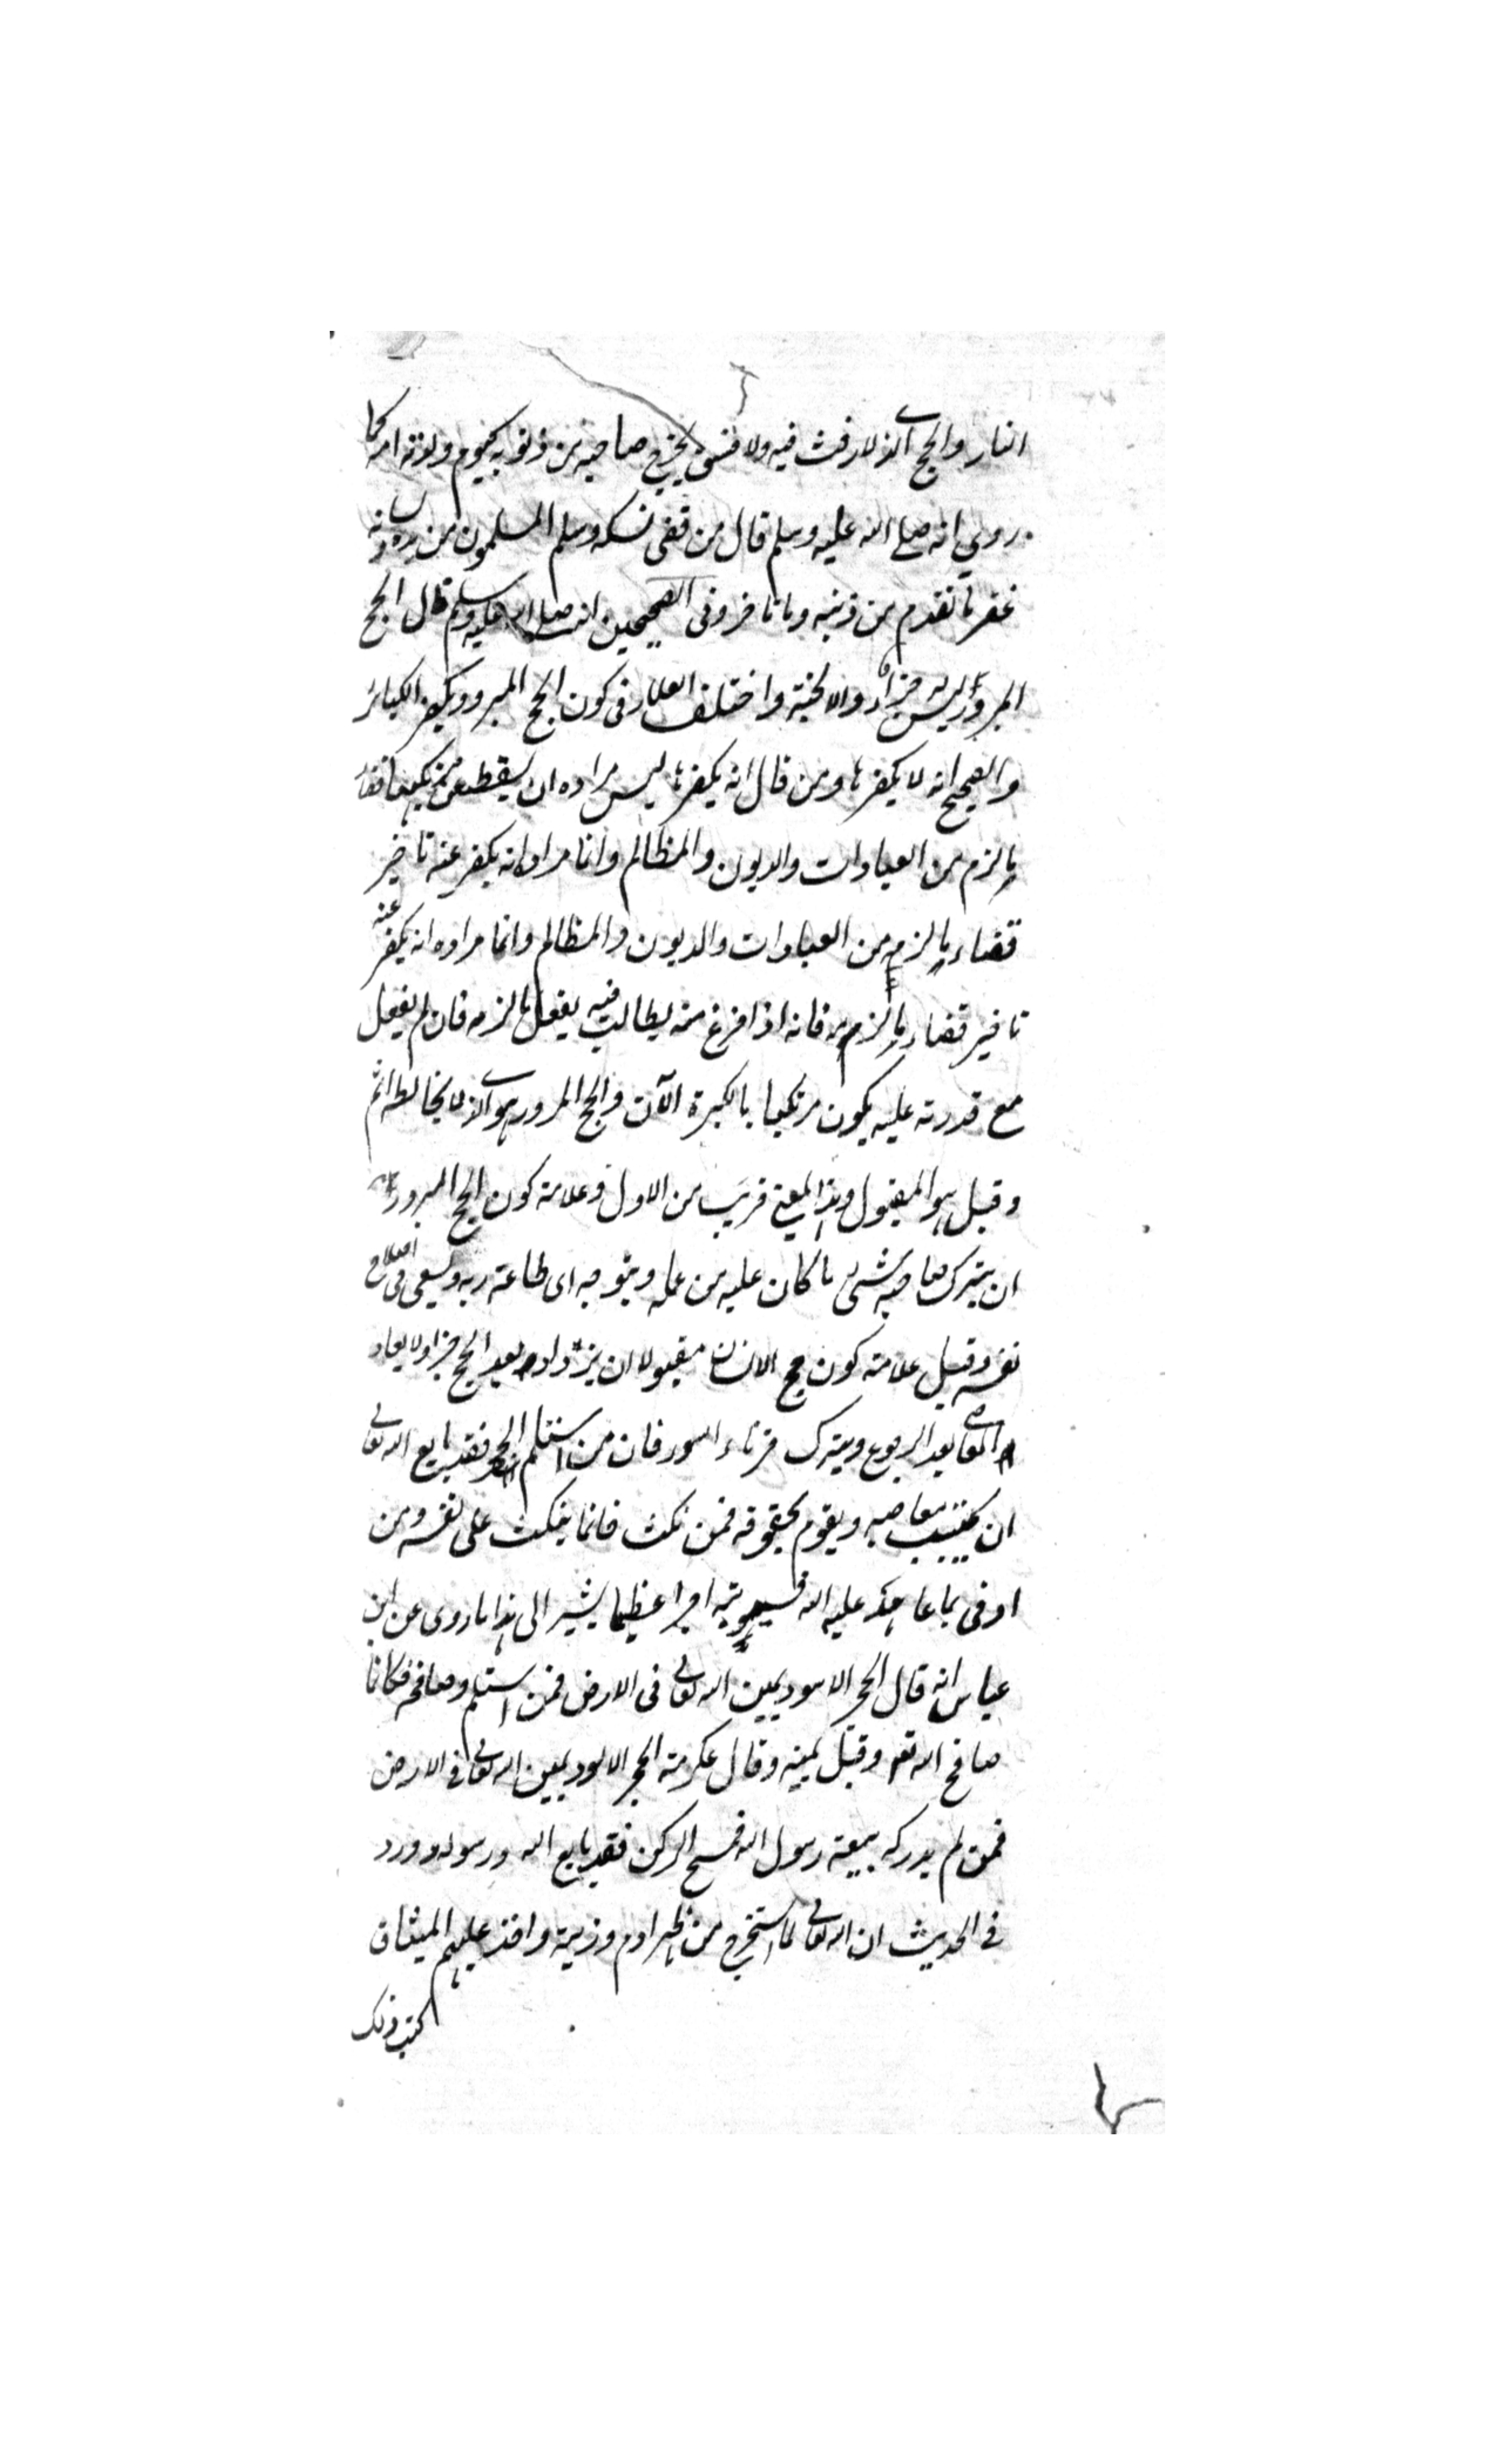 النار والحج الذي لا رفث فيه ولا فسق يخرج صاحبه من ذنوبه كيوم ولدته امه كما
روي انه صلى الله عليه وسلم قال من قضى نسكه وسلم المسلمون من لسانه ويده
غفر ما تقدم من ذنبه وما تاخر وفى الصحيحين انه صلى الله عليه وسلم قال الحج
المبرور ليس له جزاء الا الجنة واختلف العلماء فى كون الحج المبرور يكفر الكبائر
والصحيح انه لا يكفرها ومن قال انه يكفرها ليس مراده ان يسقط عن مرتكبها قضاء
ما لزم من العبادات والديون والمظالم وانما مراده انه يكفر عنه تاخير
قضاء ما لزمه من العبادات والديون والمظالم وانما مراده انه يكفر عنه
تاخير قضاء ما لزم به فانه اذا فرغ منه يطالب فيه بفعل ما لزمه فان لم يفعل
مع قدرته عليه يكون مرتكبا بالكبيرة الآن والحج المبرور هو الذي لا يخالطه اثم
وقيل هو المقبول وهذا المعنى قريب من الاول وعلامة كون الحج المبرور
ان يترك صاحبه شئ ما كان عليه من عمله ويتوجه الى طاعة ربه ويسعى فى اصلاح
نفسه وقيل علامة كون حج الانسان مقبولا ان يزداد بعد الحج خيرا ولا يعاود
المعاصى بعد الرجوع ويترك قرناء السوء فان من استلم الحجر فقد بايع الله تعالى
ان يجتنب معاصيه ويقوم بحقوقه فمن نكث فانما ينكث على نفسه ومن
اوفى بما عاهد عليه الله فسيؤتيه اجرا عظيما يشير الى هذا ما روى عن ابن
عباس انه قال الحجر الاسود يمين الله تعالى فى الارض فمن استلم وصافحه فكانما
صافح الله تعالى وقبل يمينه وقال عكرمة الحجر الاسود يمين الله تعالى فى الارض
فمن لم يدركه بيعة رسول الله فمسح الركن فقد بايع الله ورسوله وورد
فى الحديث ان الله تعالى لما استخرج من ظهر ادم وذريته واخذ عليهم الميثاق
كتب ذلك